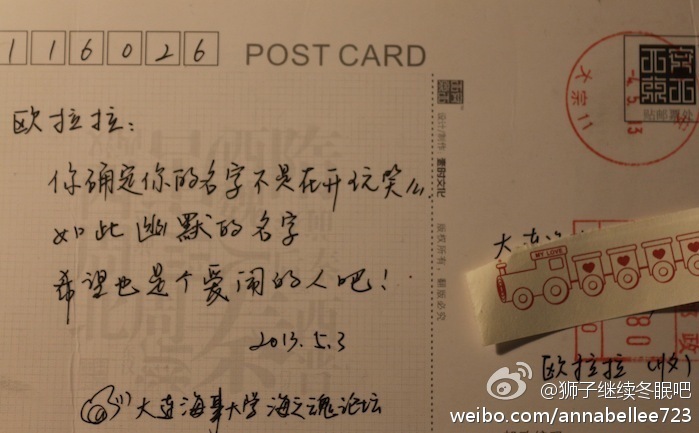 116026
POST CARD
欧拉拉：
你确定你的名字不是在开玩笑么
如此幽默的名字
希望也是个爱闹的人吧！
2013.5.3
大连海事大学海之魂论坛
设计/制作：童时文化
版权所有，翻版必究
贴邮票处
MY LOVE
欧拉拉（收）
@狮子继续冬眠吧
weibo.com/annabellee723